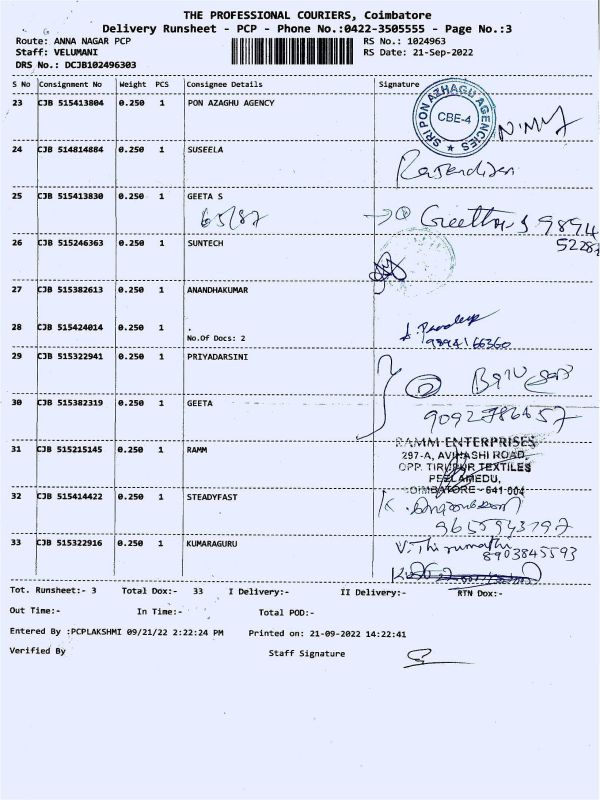 THE PROFESSIONAL COURIERS, Coimbatore
Delivery Runsheet - PCP - Phone No.:0422-3505555 - Page No.:3
Route: ANNA NAGAR PCP RS No.: 1024963
Staff: VELUMANI RS Date: 21-Sep-2022
DRS No.: DCJB102496303
S No Consignment No Weight PCS Consignee Details Signature
23 CJB 515413804 0.250 1 PON AZAGHU AGENCY
SRI PON AZHAGU AGENCIES CBE-4
24 CJB 514814884 0.250 1 SUSEELA
25 CJB 515413830 0.250 1 GEETA S
65/87 Geetha.S 9894
52287
26 CJB 515246363 0.250 1 SUNTECH
27 CJB 515382613 0.250 1 ANANDHAKUMAR
28 CJB 515424014 0.250 1 .
No.Of Docs: 2
9894166360
29 CJB 515322941 0.250 1 PRIYADARSINI
②
30 CJB 515382319 0.250 1 GEETA
9092786657
31 CJB 515215145 0.250 1 RAMM
RAMM ENTERPRISES
297-A, AVINASHI ROAD,
OPP. TIRUPUR TEXTILES
PEELAMEDU,
COIMBATORE - 641 004
32 CJB 515414422 0.250 1 STEADYFAST
9655943797
33 CJB 515322916 0.250 1 KUMARAGURU
V. Thirumathi
8903845593
Tot. Runsheet:- 3 Total Dox:- 33 I Delivery:- II Delivery:- RTN Dox:-
Out Time:- In Time:- Total POD:-
Entered By :PCPLAKSHMI 09/21/22 2:22:24 PM Printed on: 21-09-2022 14:22:41
Verified By Staff Signature